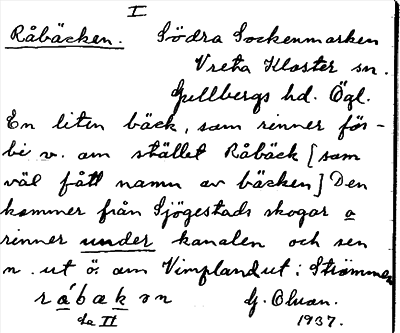 I
Råbäcken. Södra Sockenmarken
Vreta Kloster sn.
Gullbergs hd. Ögl.
En liten bäck, som rinner för-
bi v. om stället Råbäck [som
väl fått namn av bäcken] Den
kommer från Sjögestads skogar o
rinner under kanalen och sen
n. ut ö. om Vimpland ut i Strömmen
råbakən G. Olson.
se II 1937.